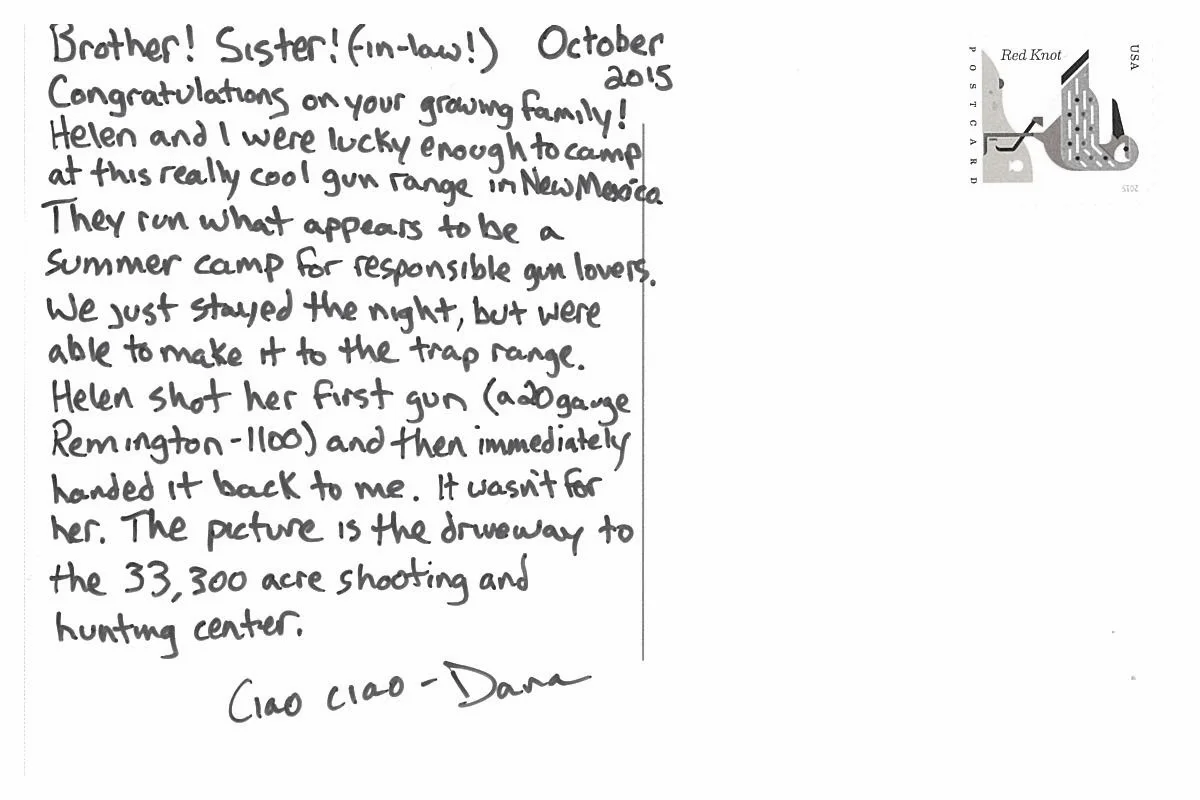 Brother! Sister! (-in-law!) October
2015
Congratulations on your growing family!
Helen and I were lucky enough to camp
at this really cool gun range in New Mexico
They run what appears to be a
summer camp for responsible gun lovers.
We just stayed the night, but were
able to make it to the trap range.
Helen shot her first gun (a 20 gauge
Remington-1100) and then immediately
handed it back to me. It wasn't for
her. The picture is the driveway to
the 33,300 acre shooting and
hunting center.
Ciao ciao - Dana
Red Knot
USA
POSTCARD
2015